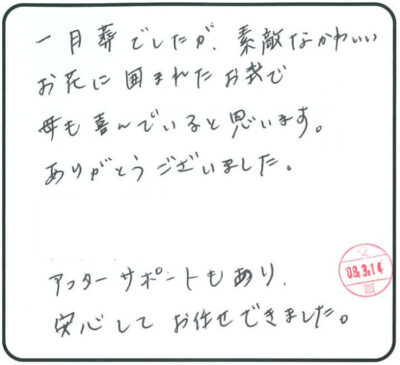 一日葬でしたが、素敵なかわいい
お花に囲まれたお式で
母も喜んでいると思います。
ありがとうございました。
アフターサポートもあり、
安心して お任せできました。
03.3.14